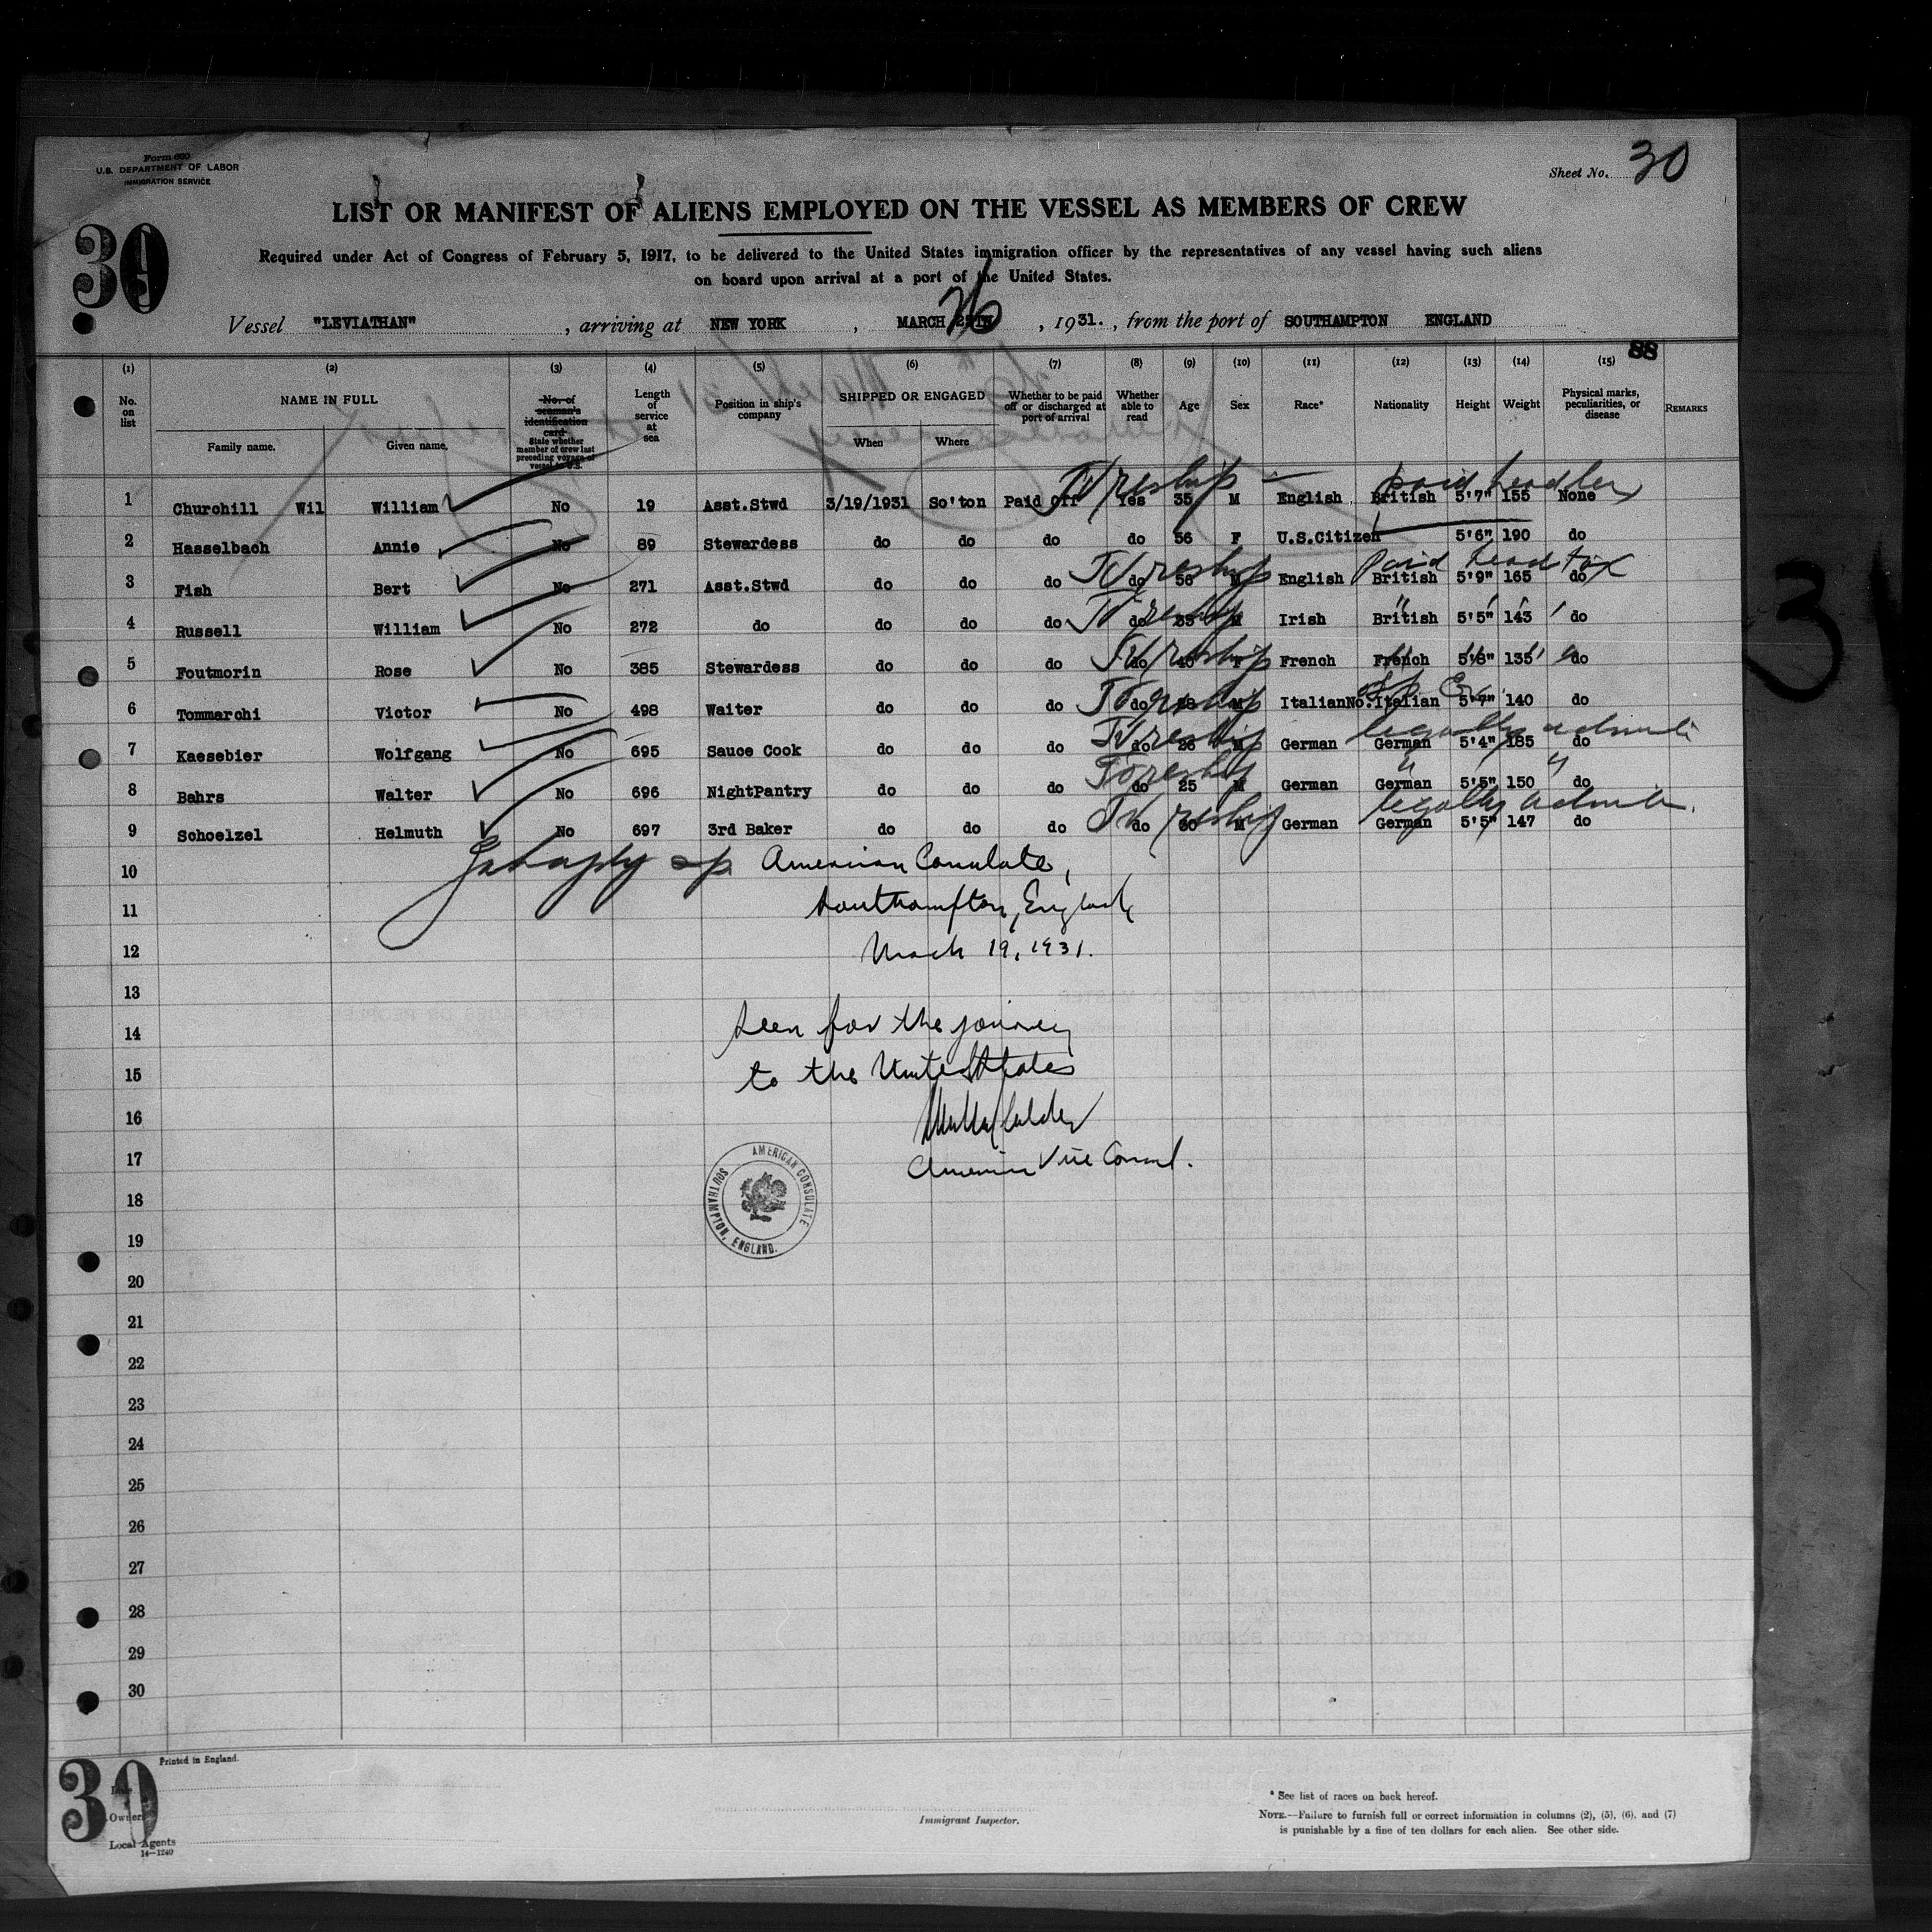 Form 680
U.S. DEPARTMENT OF LABOR
IMMIGRATION SERVICE
Sheet No. 30
LIST OR MANIFEST OF ALIENS EMPLOYED ON THE VESSEL AS MEMBERS OF CREW
30
Required under Act of Congress of February 5, 1917, to be delivered to the United States immigration officer by the representatives of any vessel having such aliens
on board upon arrival at a port of the United States.
Vessel "LEVIATHAN" , arriving at NEW YORK , MARCH 26 , 1931. , from the port of SOUTHAMPTON ENGLAND
88
(1) (2) (3) (4) (5) (6) (7) (8) (9) (10) (11) (12) (13) (14) (15)
No. on list NAME IN FULL Family name. Given name. No. of seaman's identification card State whether member of crew last preceding voyage of vessel to U.S. Length of service at sea Position in ship's company SHIPPED OR ENGAGED When Where Whether to be paid off or discharged at port of arrival Whether able to read Age Sex Race* Nationality Height Weight Physical marks, peculiarities, or disease REMARKS
1 Churchill Wil William No 19 Asst.Stwd 3/19/1931 So'ton Paid Off Yes 35 M English British 5'7" 155 None
To reship paid head tax
2 Hasselbach Annie No 89 Stewardess do do do do 56 F U.S.Citizen 5'6" 190 do
3 Fish Bert No 271 Asst.Stwd do do do do 56 M English British 5'9" 165 do
To reship Paid head tax
4 Russell William No 272 do do do do do M Irish British 5'5" 143 do
To reship " " "
5 Foutmorin Rose No 385 Stewardess do do do do 40 F French French 5'8" 135 do
To reship
6 Tommarchi Victor No 498 Waiter do do do do M Italian No. Italian 5'7" 140 do
To reship
7 Kaesebier Wolfgang No 695 Sauce Cook do do do do 26 M German German 5'4" 185 do
To reship legally admit
8 Bahrs Walter No 696 NightPantry do do do do 25 M German German 5'5" 150 do
To reship " "
9 Schoelzel Helmuth No 697 3rd Baker do do do do 30 M German German 5'5" 147 do
To reship legally admit.
10 American Consulate,
11 Southampton, England
12 March 19, 1931.
13
14 Seen for the journey
15 to the United States
16
17 American Vice Consul.
AMERICAN CONSULATE
SOUTHAMPTON, ENGLAND.
18
19
20
21
22
23
24
25
26
27
28
29
30
3
Printed in England.
30
Owners
Local Agents
14—1240
Immigrant Inspector.
* See list of races on back hereof.
NOTE.—Failure to furnish full or correct information in columns (2), (5), (6), and (7)
is punishable by a fine of ten dollars for each alien. See other side.